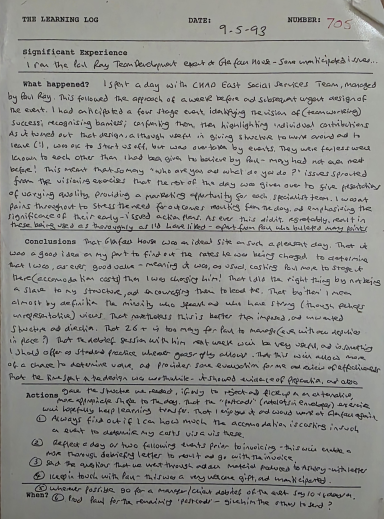 THE LEARNING LOG DATE: 9-5-93 NUMBER: 705
Significant Experience
I ran the Paul Ray Team Development event at Glafeen House - Some unanticipated issues...
What happened? I spent a day with East Social Services Team, managed
by Paul Ray. This followed the approach of a week before and subsequent urgent design of
the event. I had anticipated a four stage event identifying the vision of (teamworking)
success; recognising barriers; confronting them then highlighting individual contributions
As it turned out that design, although useful in giving structure to work around and to
leave (!), was OK to start us off, but was overtaken by events. They were far less well
known to each other than I had been given to believe by Paul - may had not even met
before! This meant that so many "who are you and what do you do?" issues sprouted
from the visioning exercises that the rest of the day was given over to five presentations
of varying quality, providing a marketing opportunity for each specialist team. I went to
pains throughout to stress the need for outcomes resulting from the day, and emphasising the
significance of their early-issued action plans. As ever this didn't, regrettably, result in
these being used as thoroughly as I'd have liked - apart from Paul who bulleted many points
Conclusions That House was an ideal site on such a pleasant day. That it
was a good idea on my part to find out the rates he was being charged to determine
that I was, as ever, good value - meaning it was, as usual, costing Paul more to stage it
there (accommodation costs) than I was charging him! That I did the right thing by not being
a slave to my structure, and in encouraging them to lead it. That by "them" I mean
almost by definition the minority who speak out who have strong (though perhaps
unrepresentative) views. That nonetheless this is better than imposed, and unwanted
structure and direction. That 26 + is too many for Paul to manage (even with two deputies
in place?) That the debrief session with him next week will be very useful, and is something
I should offer as standard practice where geography allows. That this will allow more
of a chance to determine value, and provides some evaluation for me and review of effectiveness
That the run-up to the design was worthwhile - it showed evidence of preparation, and also
gave the structure we needed, if only to reject and pick up an alternative
Actions
more appropriate shape to the day. That the "postcard" (notelets in envelopes) exercise
will hopefully help learning transfer. That I enjoyed it and would work at again.
① Always find out if I can how much the accommodation is costing in such
an event to determine my costs vis a vis these
② Reflect a day or two following events prior to invoicing - this will enable a
more thorough debriefing letter to result and go with the invoice
③ Send the questions that we went through and any material produced to with letter
④ Keep in touch with Paul - this was a very welcome gift, and unanticipated.
⑤ Wherever possible go for a manager/client debrief of the event say 10 days on.
When? ⑥ Post Paul the remaining 'postcards' - give him the others to send?